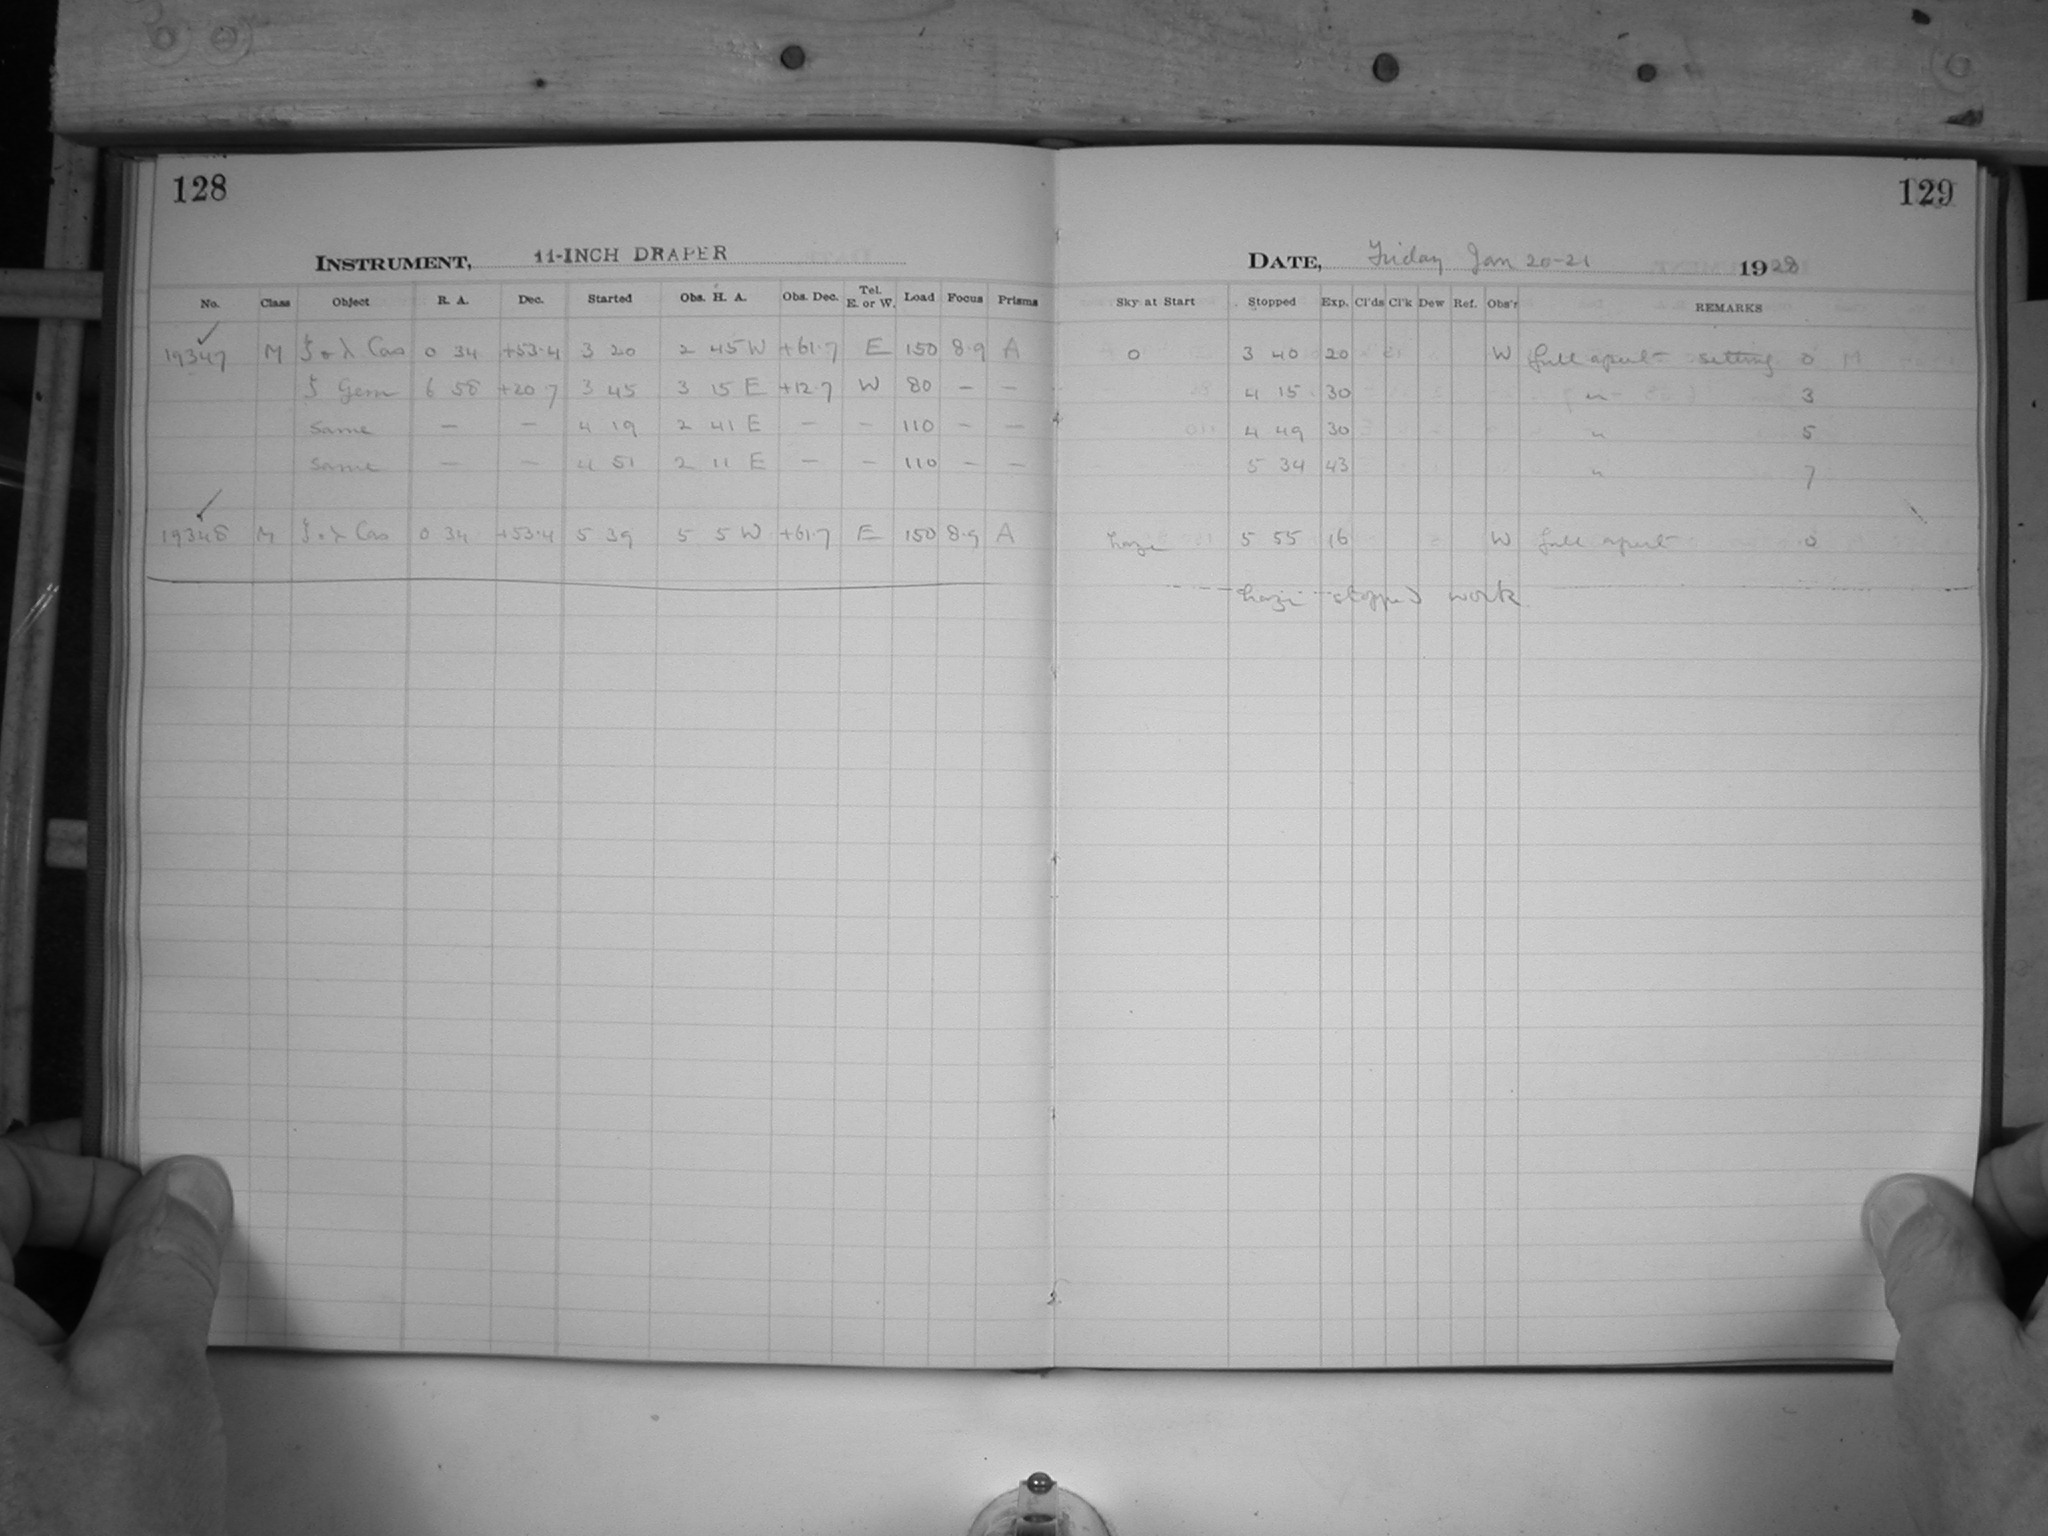 128
INSTRUMENT, 11-INCH DRAPER
No. Class Object R. A. Dec. Started Obs. H. A. Obs. Dec. Tel. E. or W. Load Focus Prisms
19347 M ζ & λ Cas 0 34 +53.4 3 20 2 45 W +61.7 E 150 8.9 A
ζ Gem 6 58 +20 7 3 45 3 15 E +12.7 W 80 – –
same – – 4 19 2 41 E – – 110 – –
same – – 4 51 2 11 E – – 110 – –
19348 M ζ & λ Cas 0 34 +53.4 5 39 5 5 W +61.7 E 150 8.9 A
129
DATE, Friday Jan 20-21 1928
Sky at Start Stopped Exp. Cl'ds Cl'k Dew Ref. Obs'r REMARKS
0 3 40 20 W full apert setting 0 M
4 15 30 " 3
4 49 30 " 5
5 34 43 " 7
haze 5 55 16 W full apert 0
haze stopped work